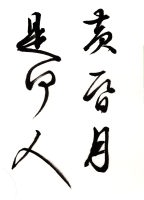 黄昏月
是何人